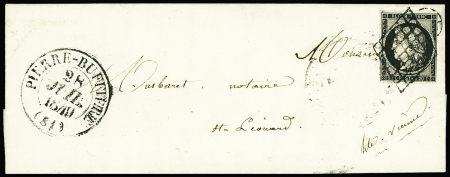 PIERRE-BUFFIÈRE
28
JUIL.
1849
(81)
Monsieur
Barbaret, notaire
St Léonard
Hte Vienne